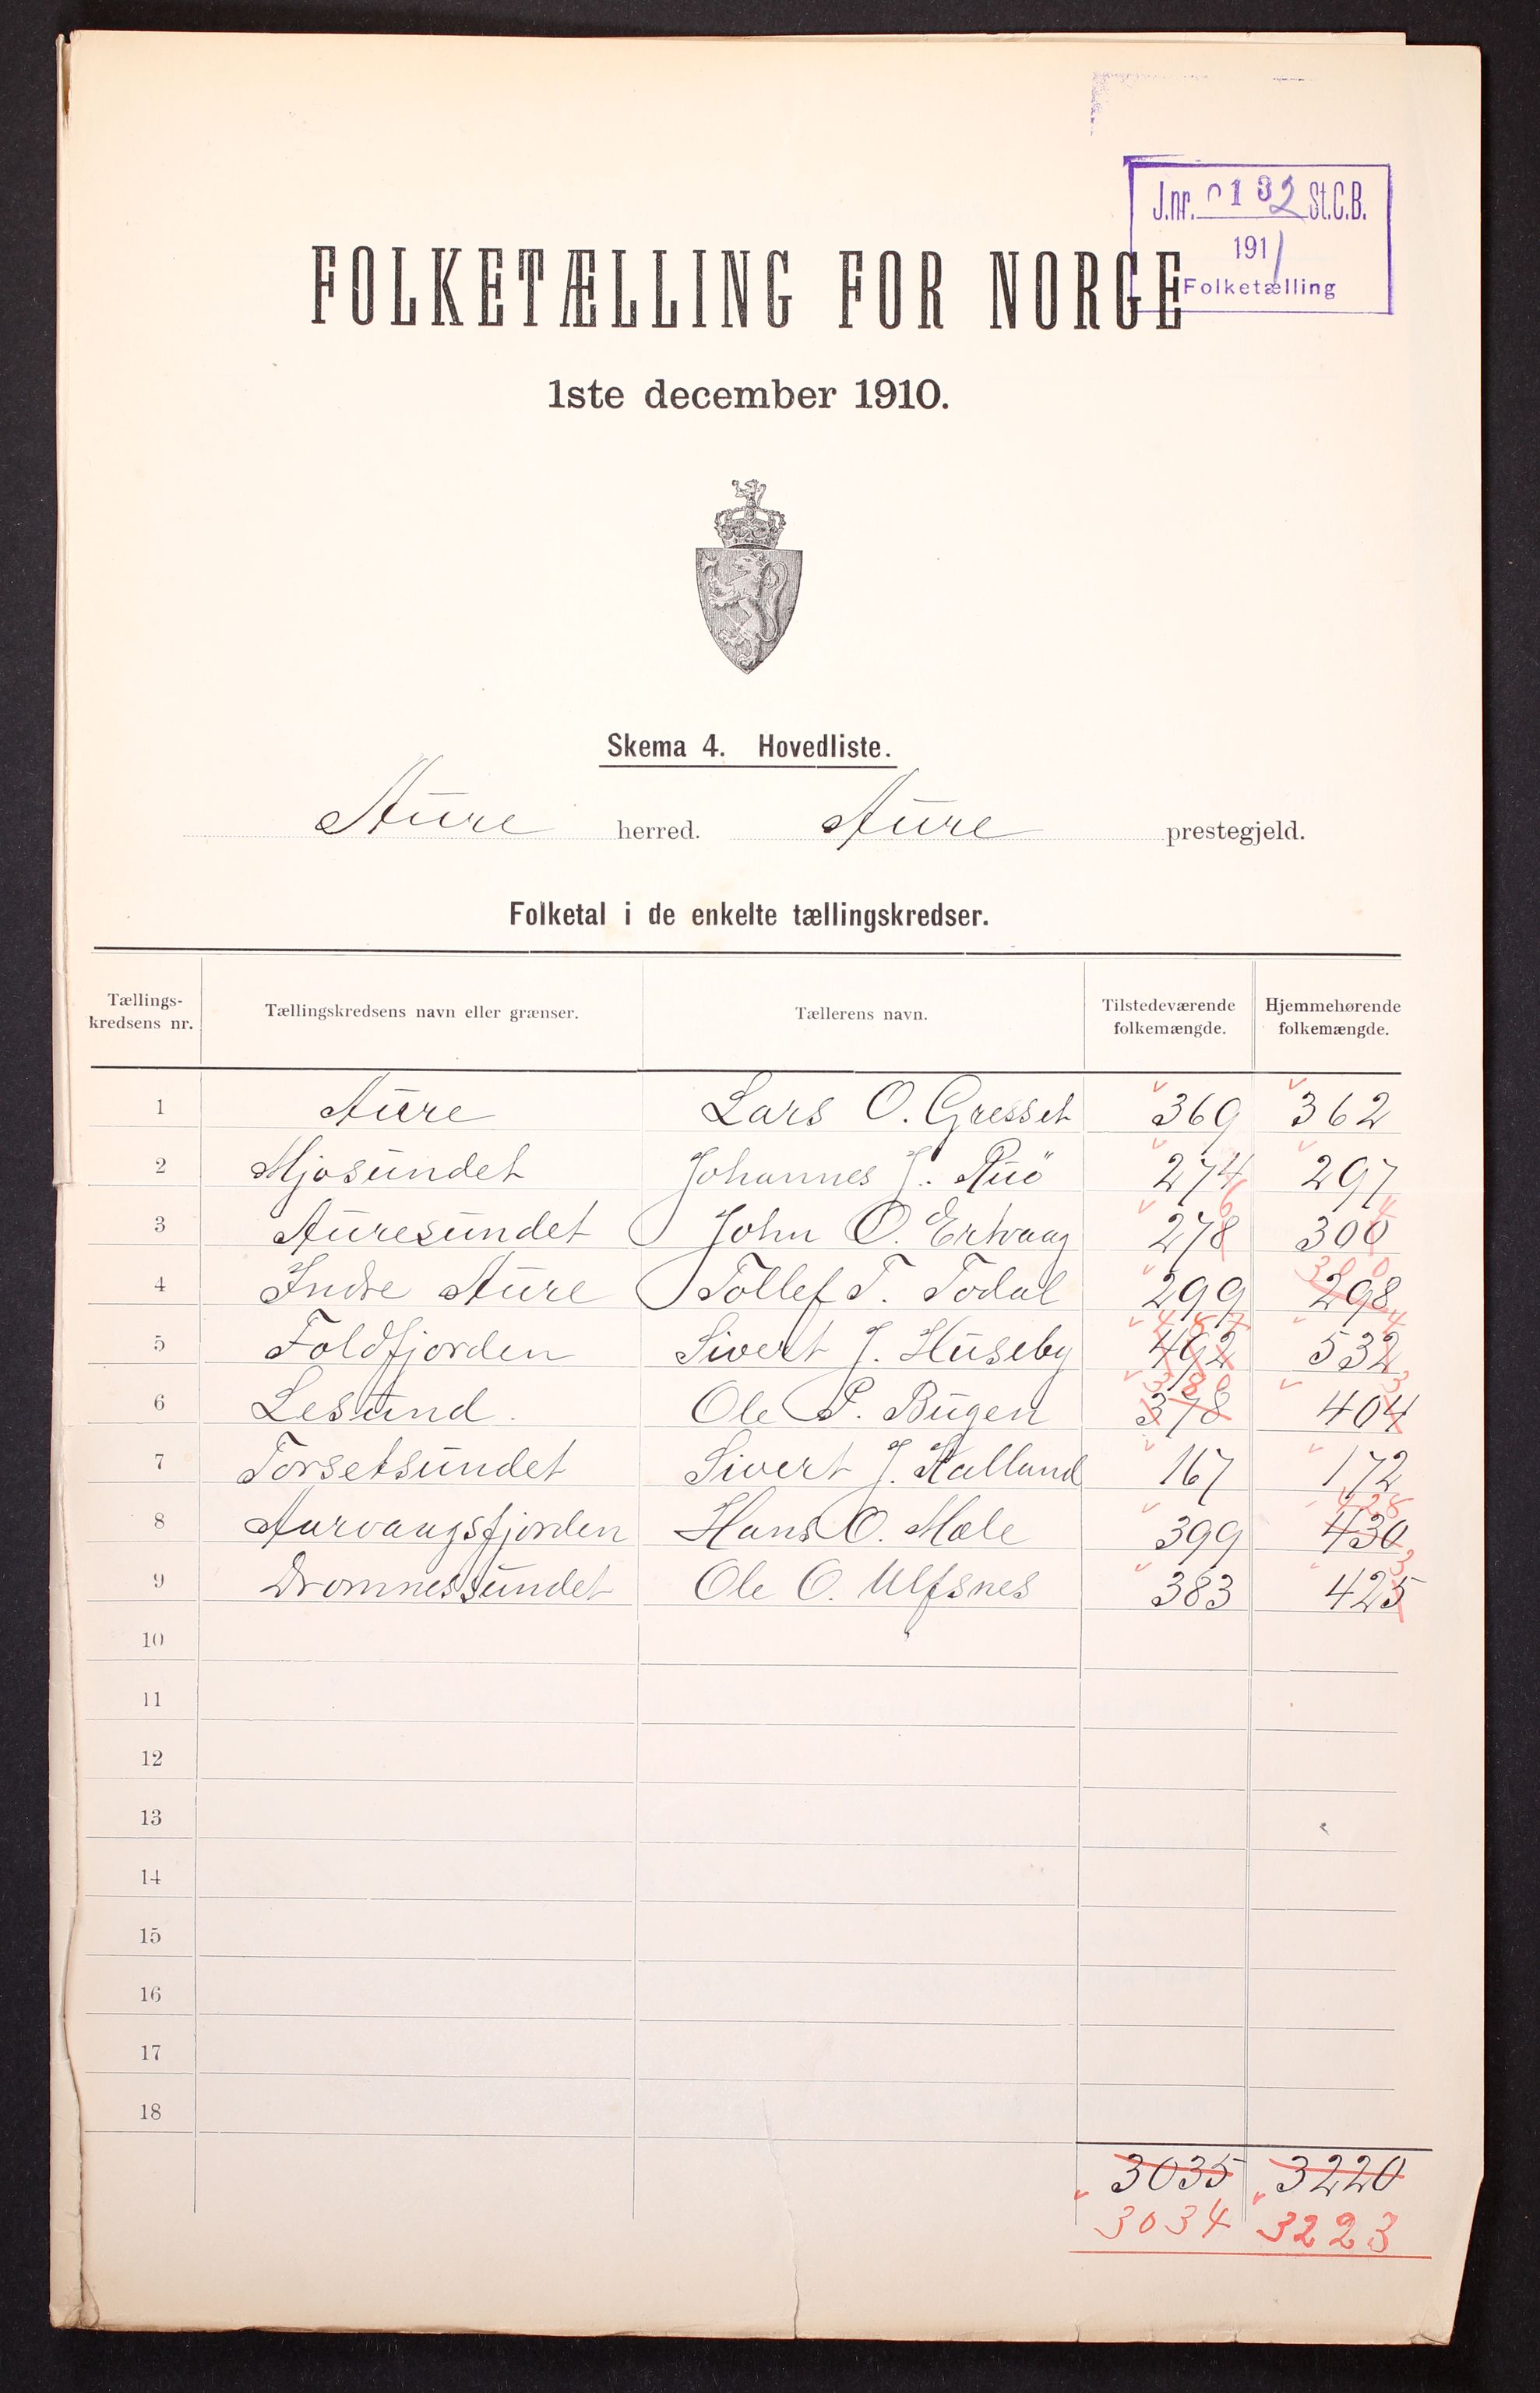 J.nr. 0132 St.C.B.
1911
Folketælling
FOLKETÆLLING FOR NORGE
1ste december 1910.
Skema 4. Hovedliste.
Aure herred. Aure prestegjeld.
Folketal i de enkelte tællingskredser.
Tællings-kredsens nr. Tællingskredsens navn eller grænser. Tællerens navn. Tilstedeværende folkemængde. Hjemmehørende folkemængde.
1 Aure Lars O. Gresset 369 362
2 Mjosundet Johannes J. Ruö 274 297
6 4
3 Auresundet John O. Ertvaag 278 300
300
4 Indre Aure Tollef T. Todal 299 298
487 4
5 Foldfjorden Sivert J. Huseby 492 532
380 3
6 Lesund. Ole P. Bugen 378 404
7 Torsetsundet Sivert J. Kalland 167 172
428
8 Aarvaagsfjorden Hans O. Mole 399 430
3
9 Dromnessundet Ole O. Ulfsnes 383 425
10
11
12
13
14
15
16
17
18
3035 3220
3034 3223